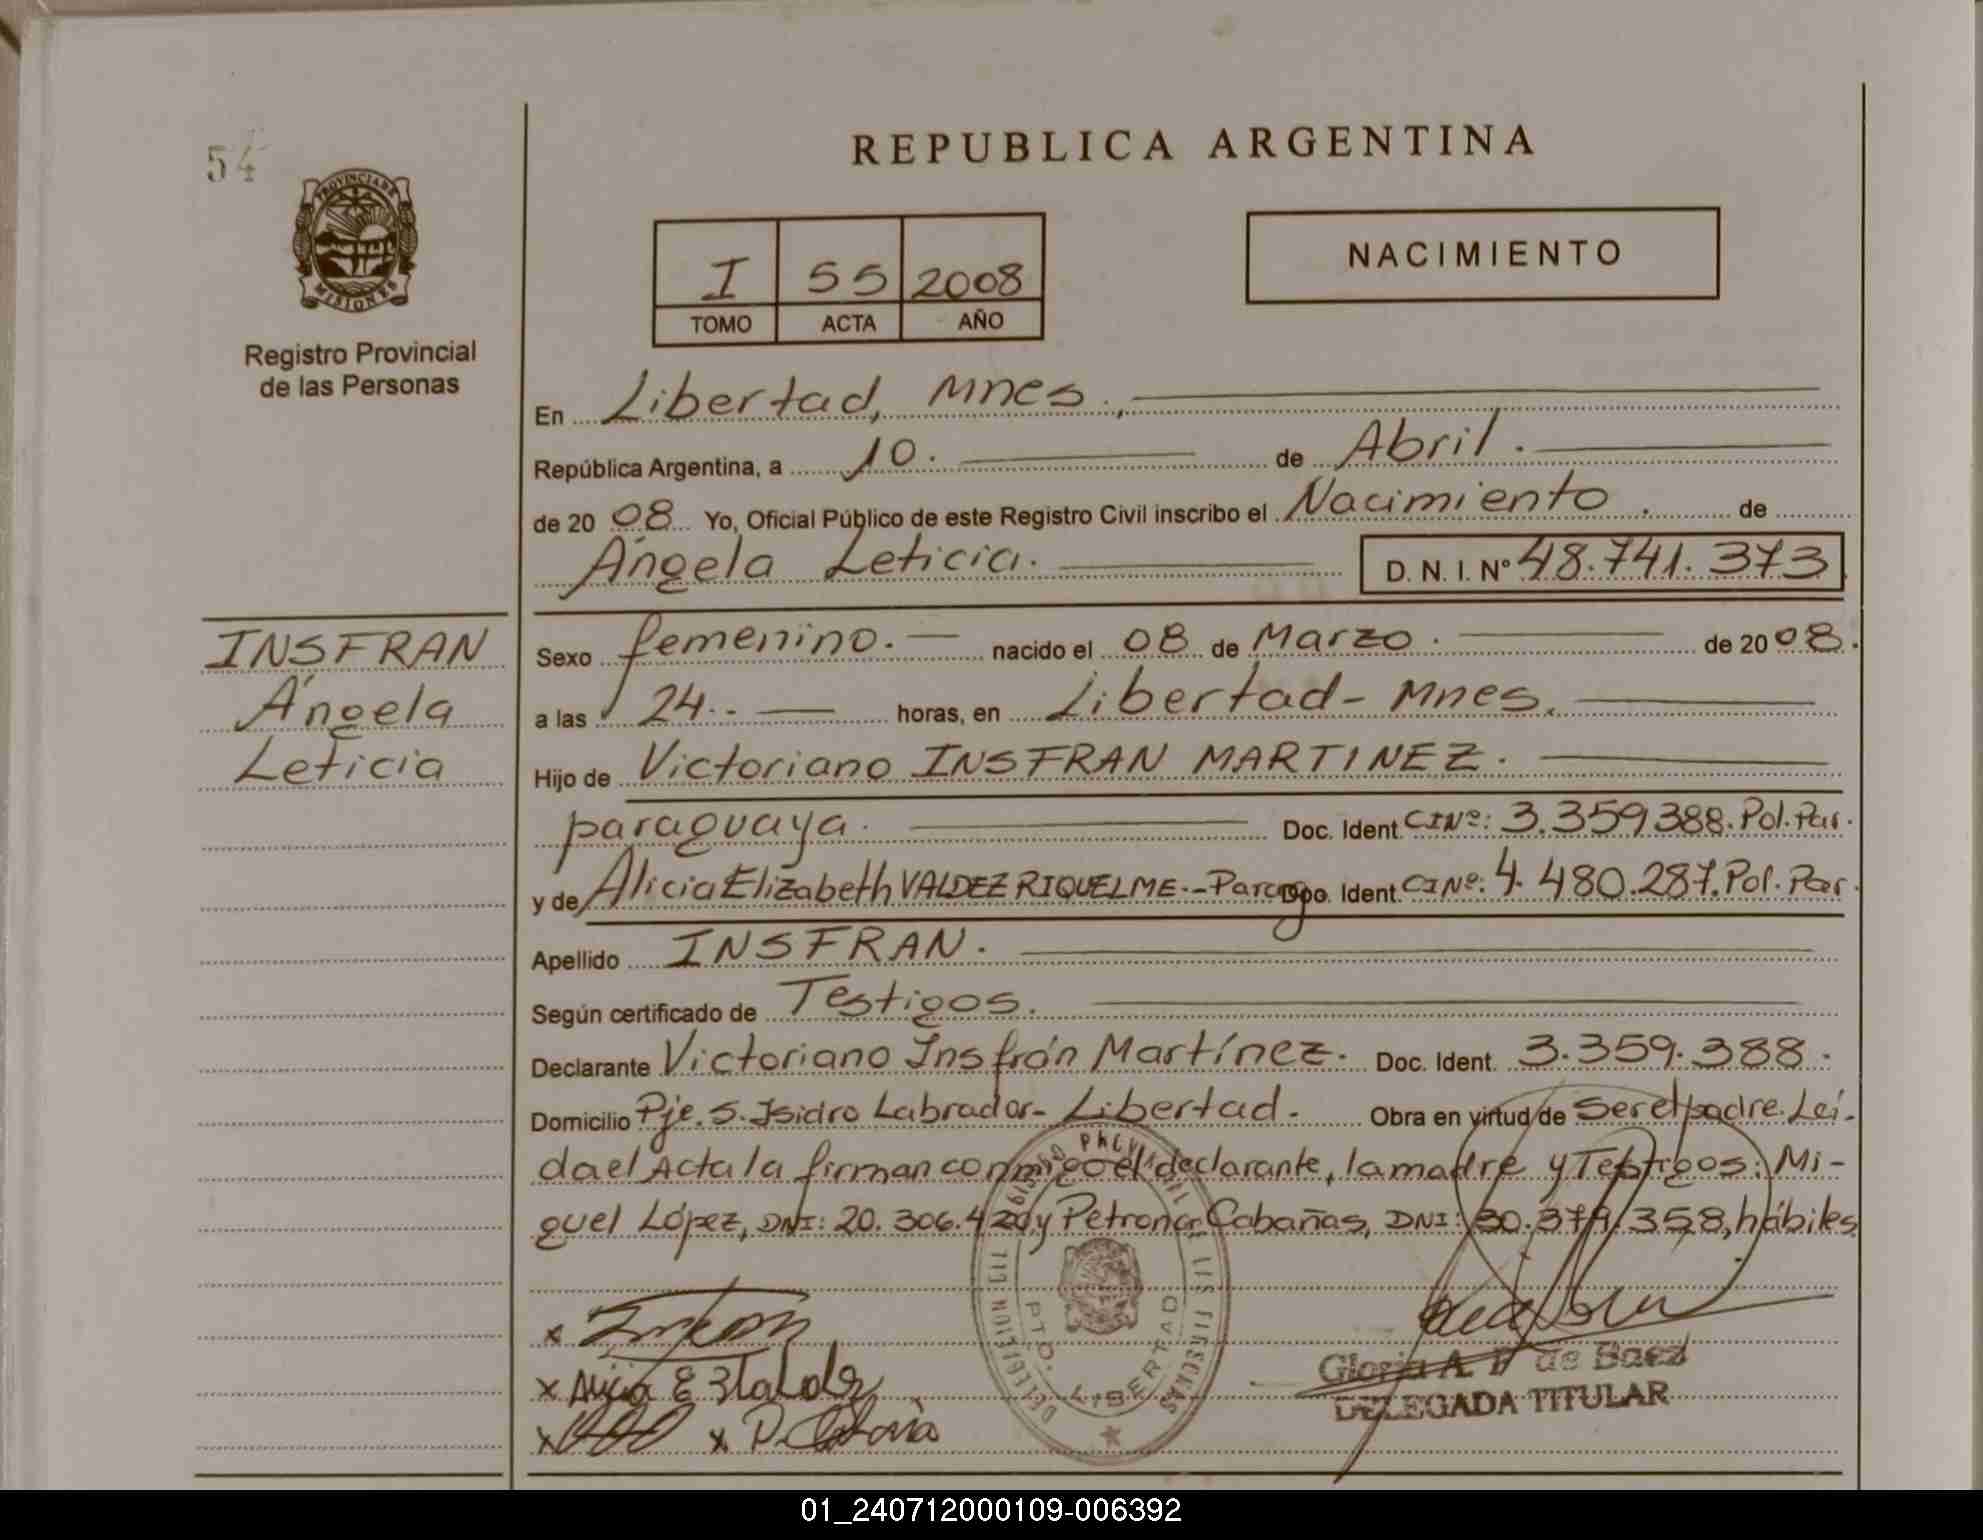 54
PROVINCIA DE
MISIONES
Registro Provincial
de las Personas
REPUBLICA ARGENTINA
I 55 2008
TOMO ACTA AÑO
NACIMIENTO
En Libertad, Mnes.,
República Argentina, a 10. de Abril.
de 2008 Yo, Oficial Público de este Registro Civil inscribo el Nacimiento. de
Ángela Leticia. D. N. I. Nº 48.741.373
INSFRAN
Ángela
Leticia
Sexo femenino. nacido el 08 de Marzo. de 2008.
a las 24.- horas, en Libertad- Mnes.
Hijo de Victoriano INSFRAN MARTINEZ.
paraguaya. Doc. Ident. CINº: 3.359.388. Pol. Par.
y de Alicia Elizabeth VALDEZ RIQUELME.- Parag Doc. Ident. CINº: 4.480.287. Pol. Par.
Apellido INSFRAN.
Según certificado de Testigos.
Declarante Victoriano Insfrán Martínez. Doc. Ident. 3.359.388.
Domicilio Pje. S. Isidro Labrador- Libertad. Obra en virtud de ser el padre. Lei-
da el Acta la firman conmigo el declarante, la madre y Testigos: Mi-
guel López, DNI: 20.306.420 y Petrona Cabañas, DNI: 30.379.358, hábiles
x
x Alicia E
x x P.
DELEGACION CIVIL
PTO. LIBERTAD
Gloria A. de Baez
DELEGADA TITULAR
01_240712000109-006392